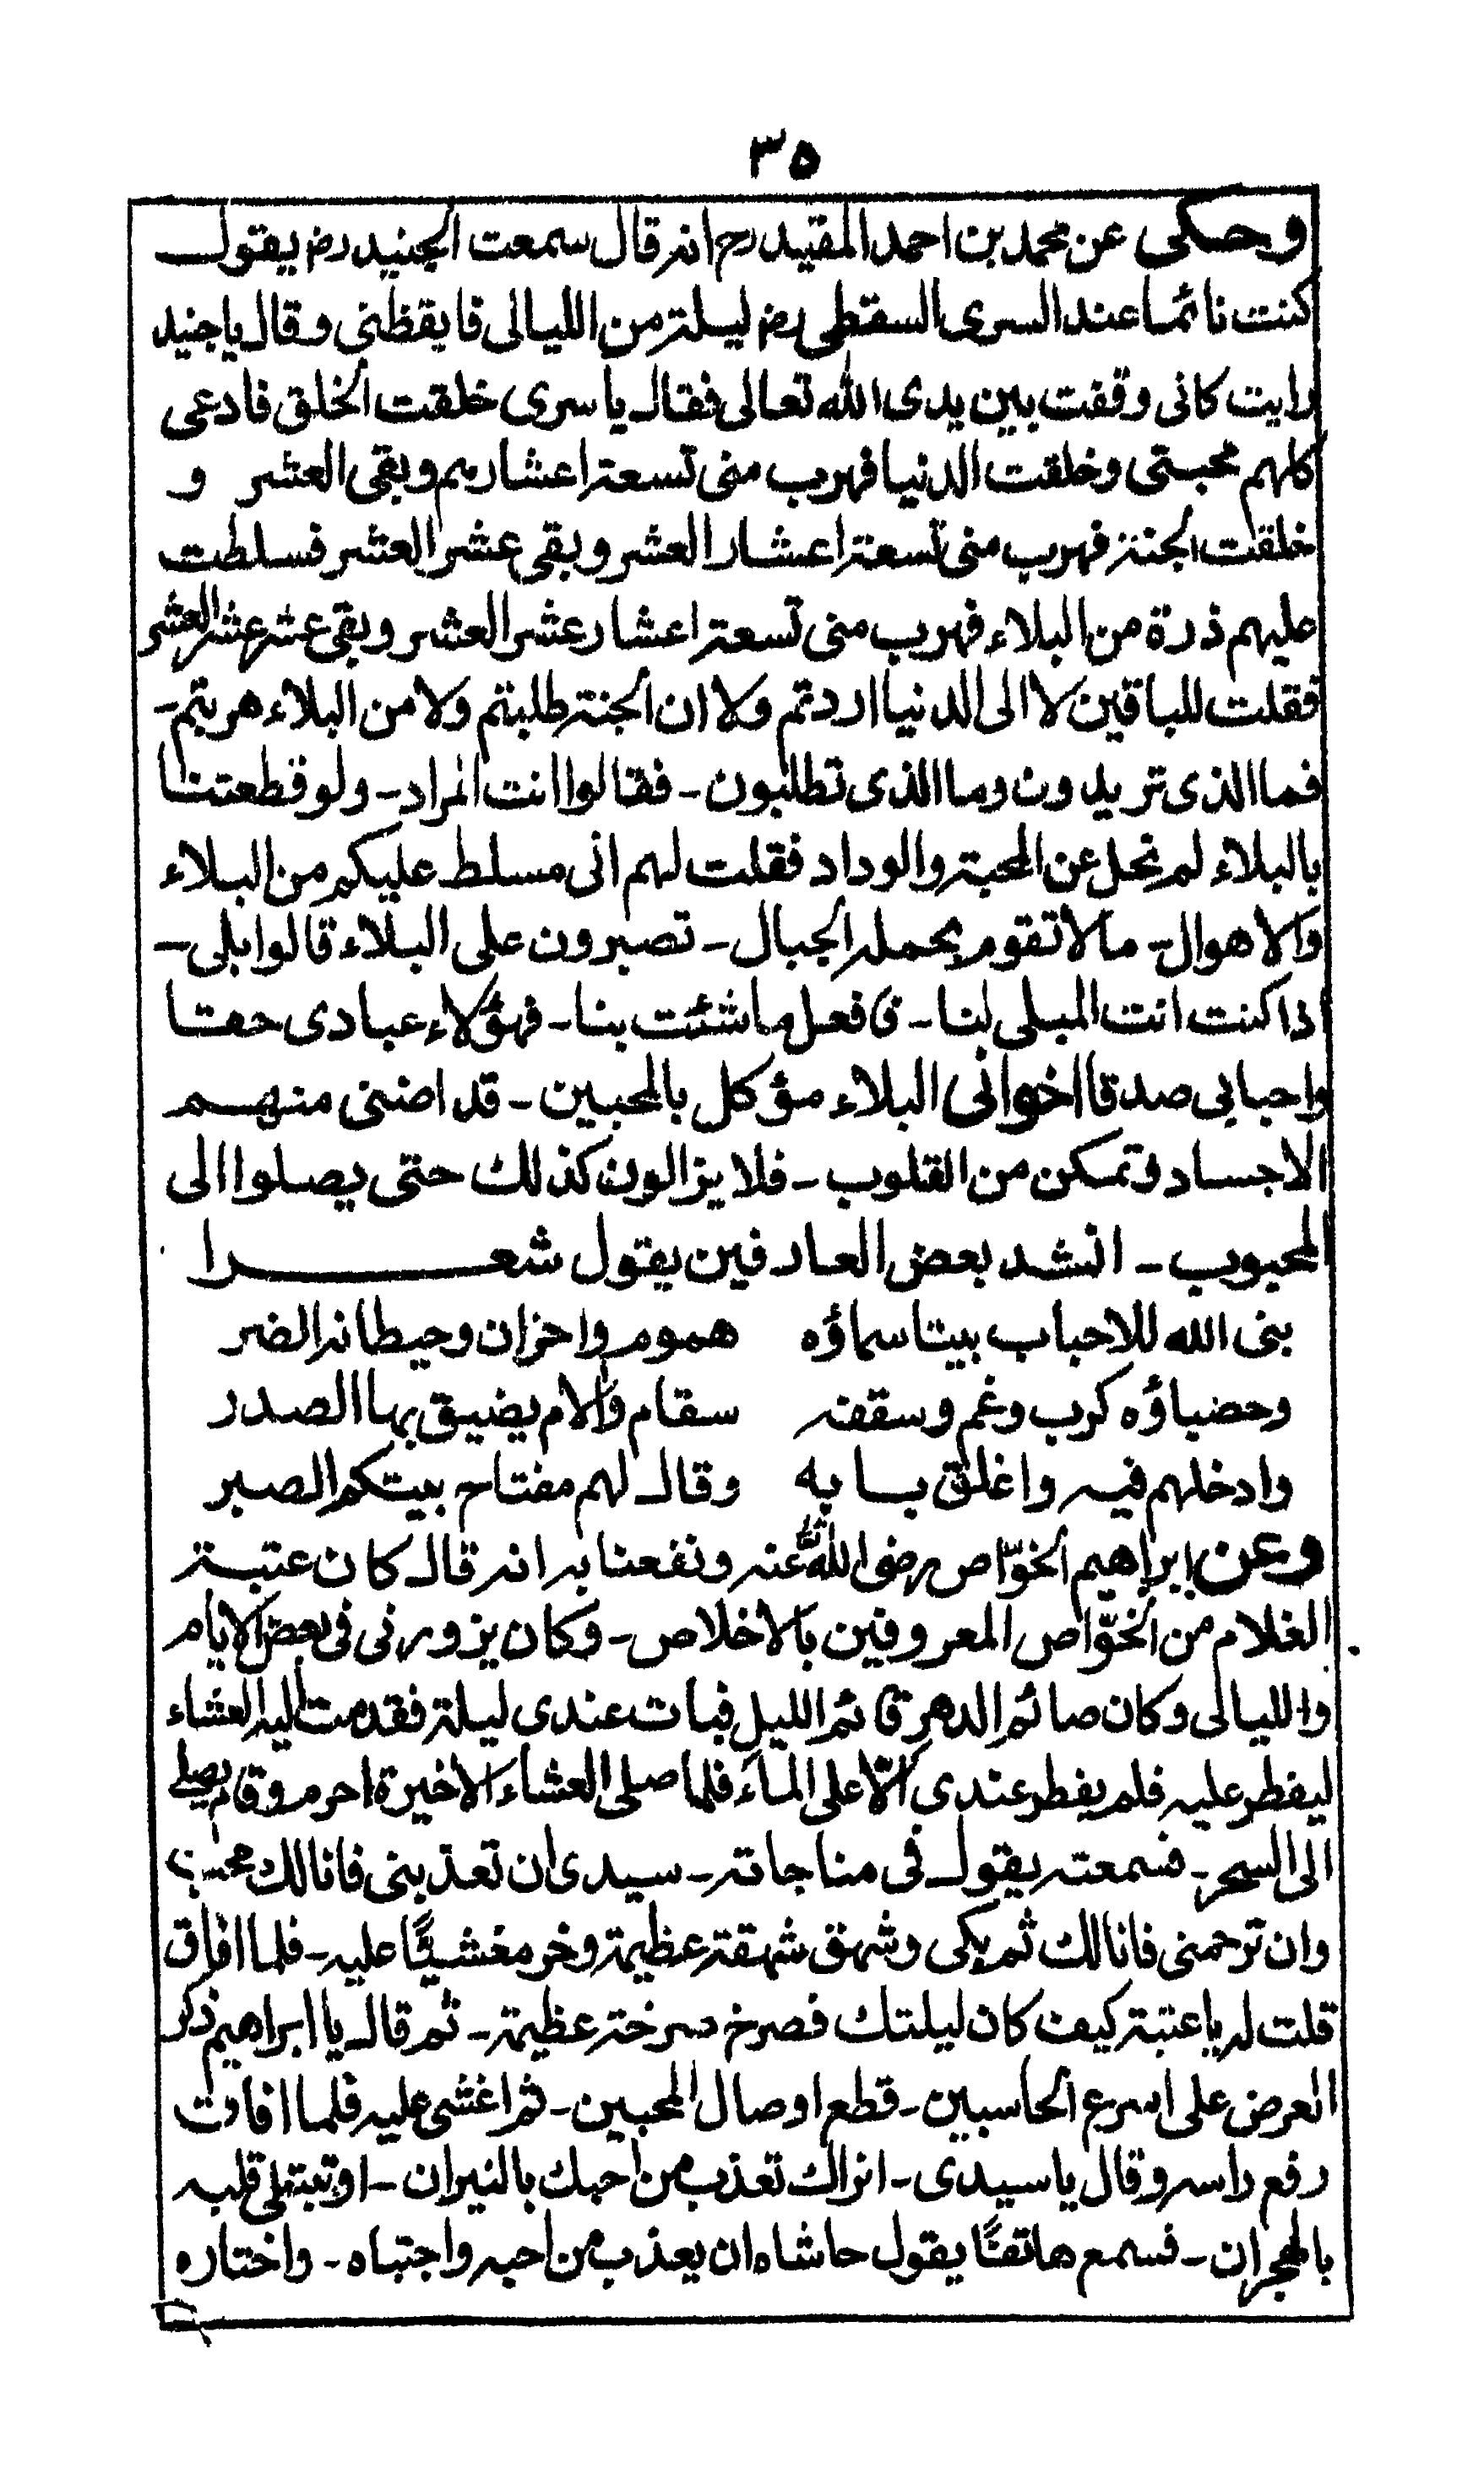 ٣٥
وحكى عن محمد بن احمد المقيد رح انه قال سمعت الجنيد رض يقول
كنت نائما عند السرى السقطى رض ليلة من الليالى فايقظنى وقال ياجنيد
رايت كانى وقفت بين يدى الله تعالى فقال يا سرى خلقت الخلق فادعى
كلهم محبتى وخلقت الدنيا فهرب منى تسعة اعشارهم وبقى العشر و
خلقت الجنة فهرب منى تسعة اعشار العشر وبقى عشر العشر فسلطت
عليهم ذرة من البلاء فهرب منى تسعة اعشار عشر العشر وبقى عشر عشر العشر
فقلت للباقين لا الى الدنيا اردتم ولا ان الجنة طلبتم ولا من البلاء هربتم -
فما الذى تريدون وما الذى تطلبون - فقالوا انت المراد - ولو قطعتنا
بالبلاء لم نحل عن المحبة والوداد فقلت لهم انى مسلط عليكم من البلاء
والاهوال - ما لا تقوم بحمله الجبال - تصبرون على البلاء قالوا بلى -
اذا كنت انت المبلى لنا - فافعل ما شئت بنا - فهؤلاء عبادى حقا
واحبابى صدقا اخوانى البلاء مؤكل بالمحبين - قد اضنى منهم
الاجساد وتمكن من القلوب - فلا يزالون كذلك حتى يصلوا الى
المحبوب - انشد بعض العارفين يقول شعرا
بنى الله للاحباب بيتا سماؤه هموم واحزان وحيطانه الضر
وحضباؤه كرب وغم وسقفه سقام والام يضيق بها الصدر
وادخلهم فيه واغلق بابه وقال لهم مفتاح بيتكم الصبر
وعن ابراهيم الخوّاص رضى الله عنه ونفعنا به انه قال كان عتبة
الغلام من الخوّاص المعروفين بالاخلاص - وكان يزورنى فى بعض الايام
والليالى وكان صائم الدهر قائم الليل فبات عندى ليلة فقدمت اليه العشاء
ليفطر عليه فلم يفطر عندى الّا على الماء فلما صلى العشاء الاخيرة احرم وقام يصلى
الى السحر - فسمعته يقول فى مناجاته - سيدى ان تعذبنى فانا لك محب
وان ترحمنى فانا لك ثم بكى وشهق شهقة عظيمة وخر مغشيًّا عليه - فلما افاق
قلت له يا عتبة كيف كان ليلتك فصرخ صرخة عظيمة - ثم قال يا ابراهيم ذكر
العرض على اسرع الحاسبين - قطع اوصال المحبين - ثم اغشى عليه فلما افاق
رفع راسه وقال يا سيدى - اتراك تعذب من احبك بالنيران - او تبتلى قلبه
بالهجران - فسمع هاتفًا يقول حاشاه ان يعذب من احبه واجتباه - واختاره